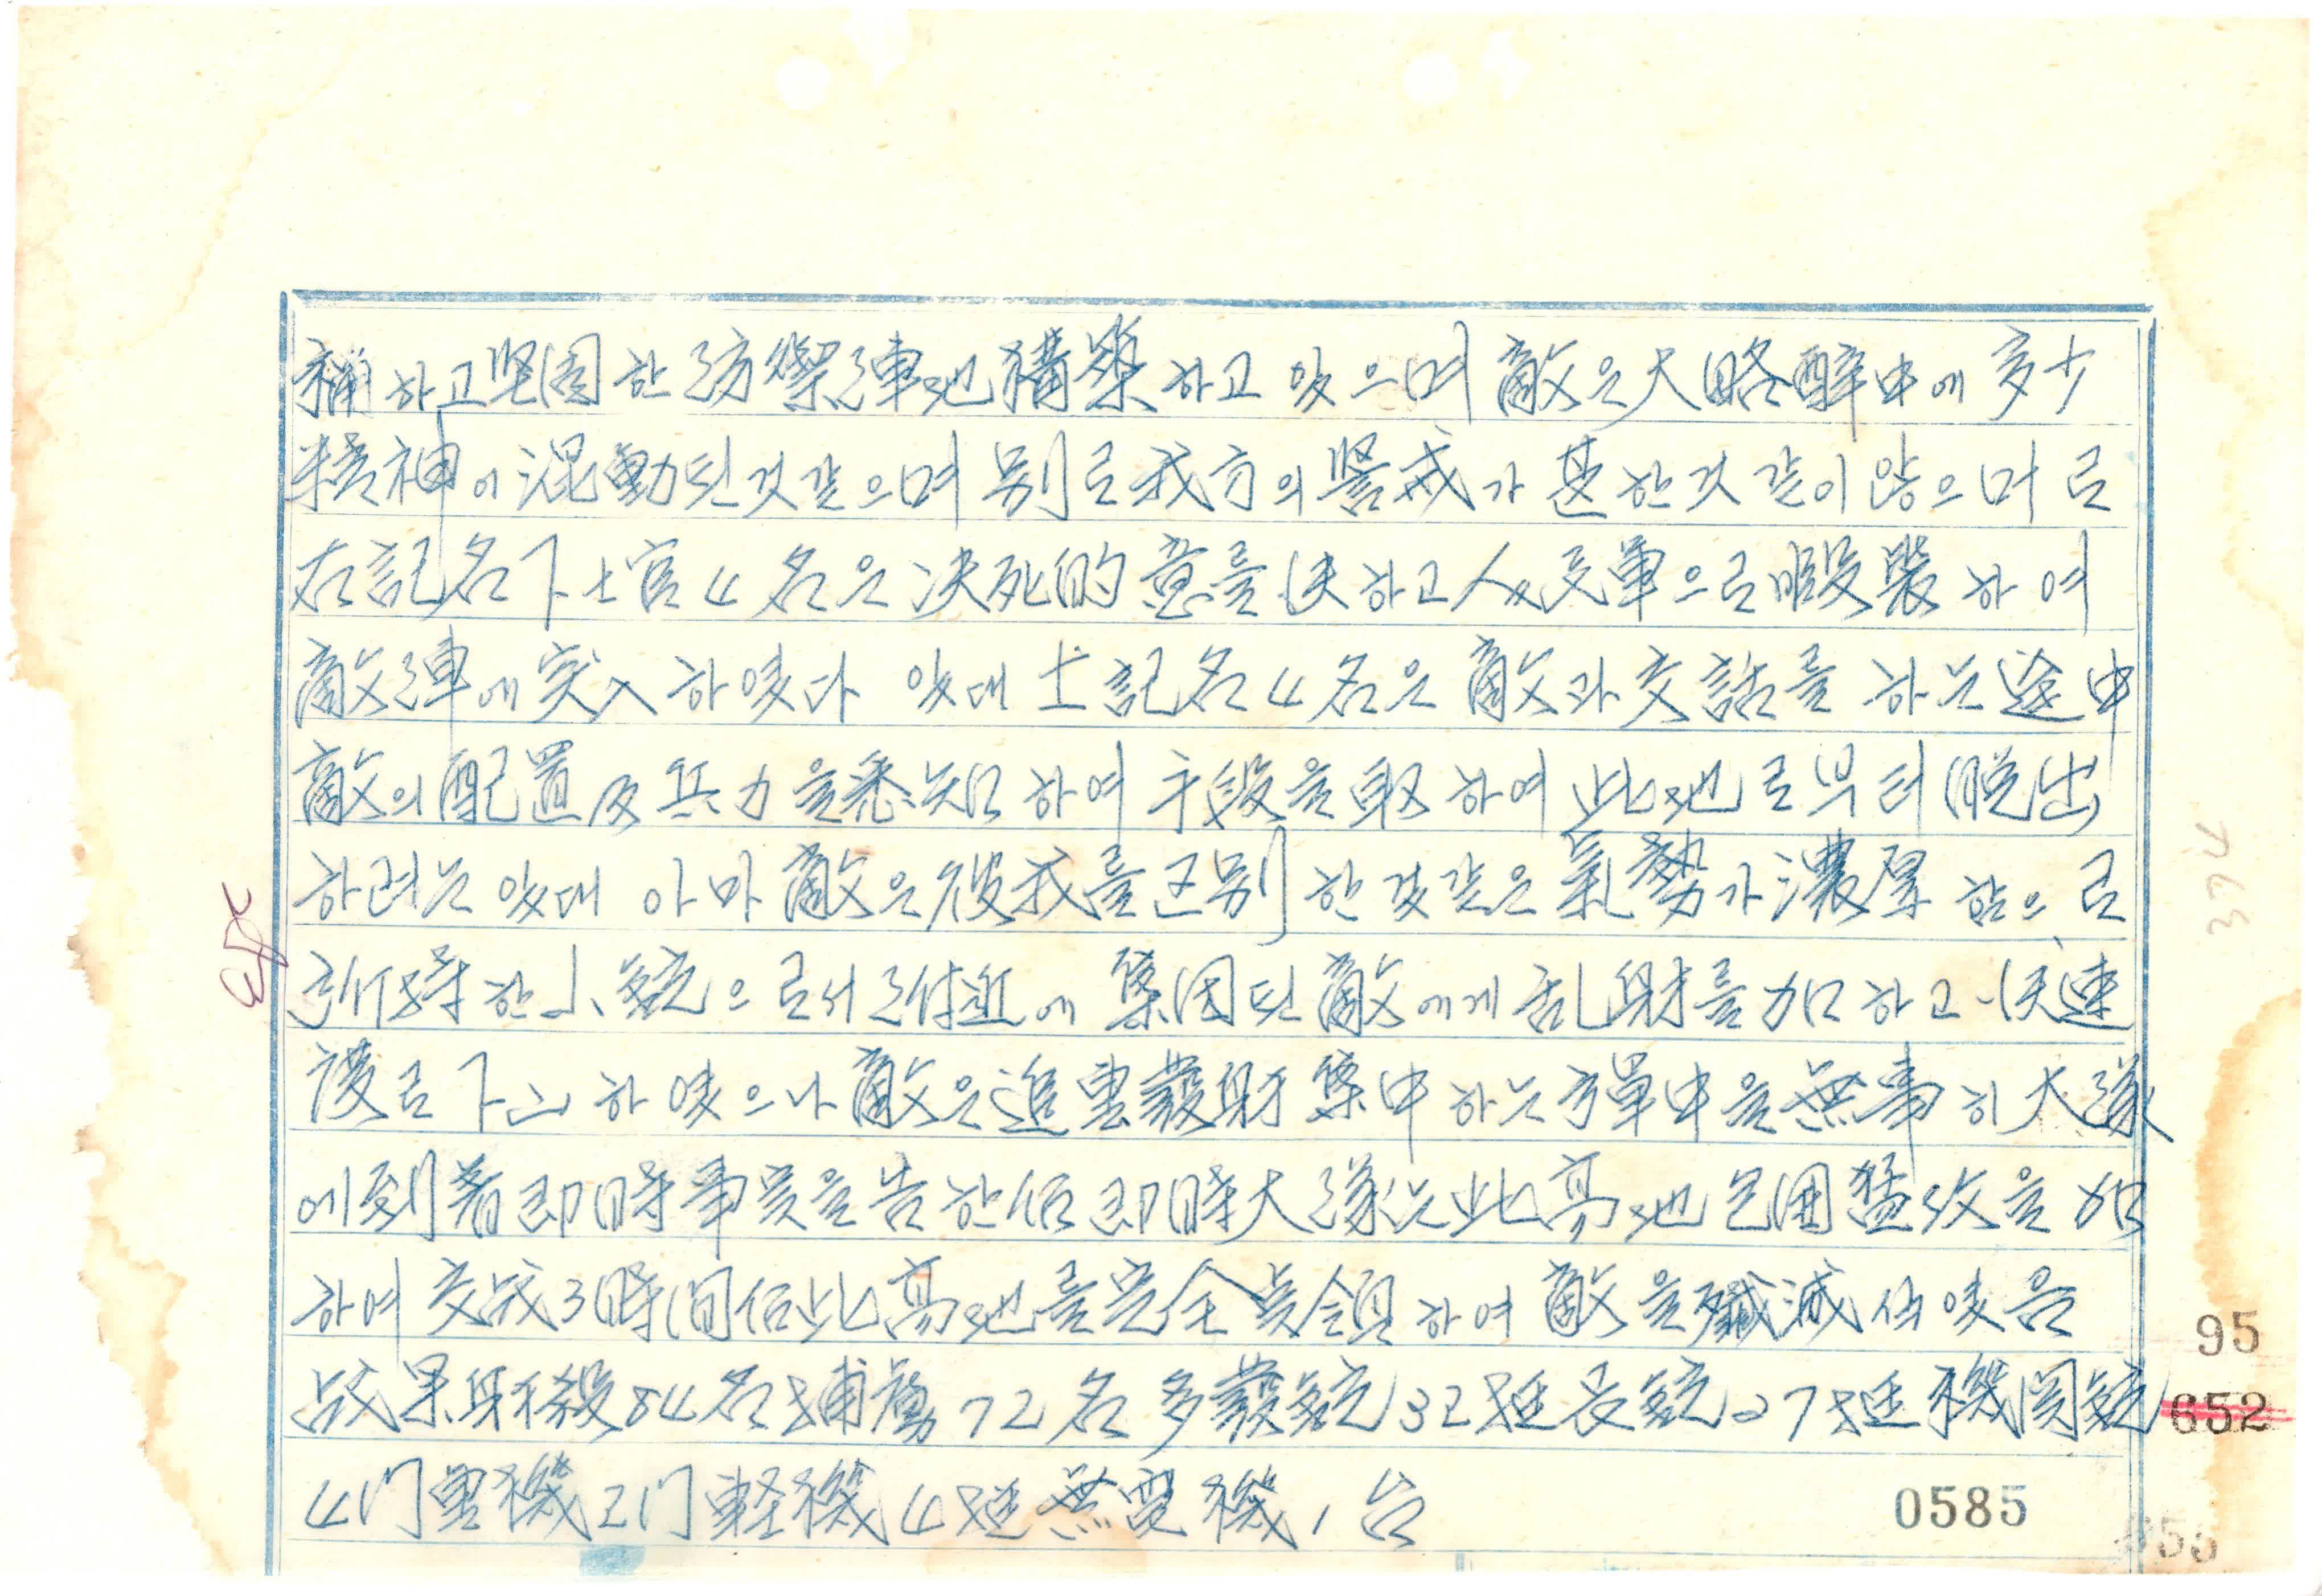 補하고 坚固한 防禦陣地 構築하고 있으며 敵은 大略 醉中에 多少
精神이 混動된것같으며 別로 我方의 警戒가 甚한것 같이 않으며로
右記名 下士官 4名은 决死的 意를 決하고 人民軍으로 假裝하여
敵陣에 突入하였다 있대 士記名 4名은 敵과 交話를 하는 途中
敵의 配置及 兵力을 悉知하여 手段을 取하여 此地로부터 脱出
하려는 있대 아마 敵은 彼我를 区別한것같은 氣勢가 濃厚함으로
所持한 小銃으로서 附近에 集団된 敵에게 乱射를 加하고 快速
後로 下山하였으나 敵은 追重發射 集中하는 彈中을 無事히 大隊
에 到着 即時 事実을 告한后 即時 大隊는 此高地 包囲 猛攻을 加
하여 交战 3時間后 此高地를 完全 占領하여 敵을 殲滅시켰음
战果 射殺 84名 捕虜 72名 多發銃 32挺 長銃 27挺 機関銃
4门 重機 2门 軽機 4挺 無電機 1台
374
95
652
0585